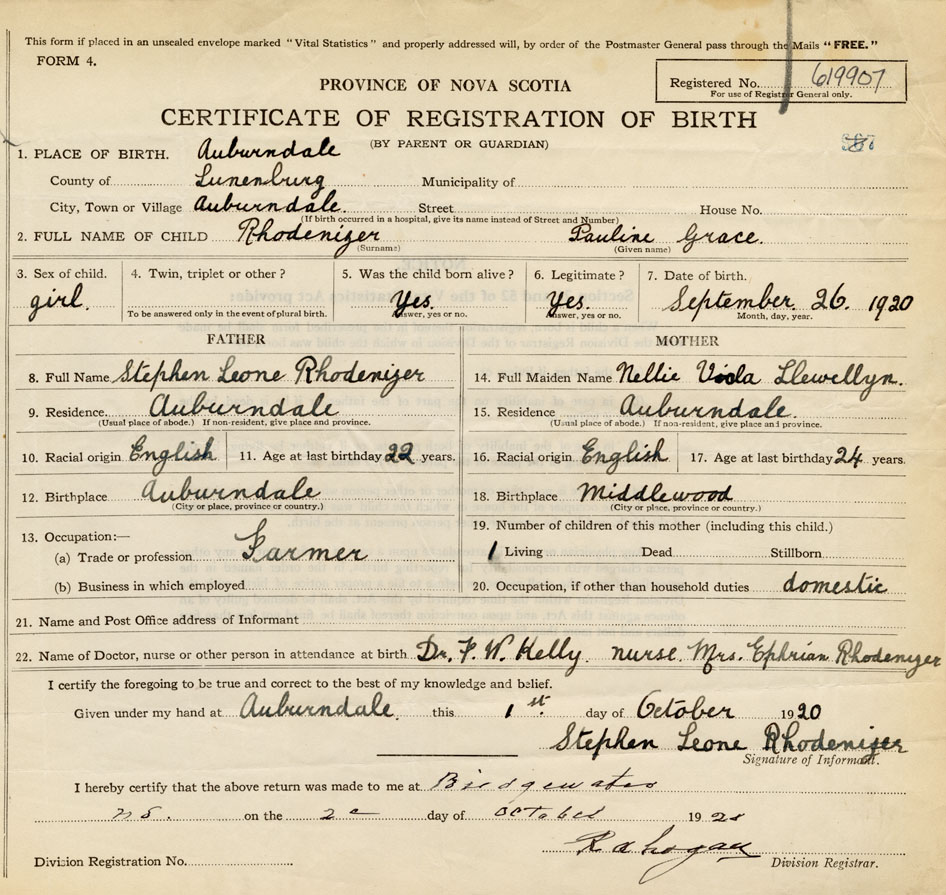 This form if placed in an unsealed envelope marked "Vital Statistics" and properly addressed will, by order of the Postmaster General pass through the Mails "FREE."
FORM 4.
PROVINCE OF NOVA SCOTIA
Registered No. 619907
For use of Registrar General only.
CERTIFICATE OF REGISTRATION OF BIRTH
(BY PARENT OR GUARDIAN)
1. PLACE OF BIRTH. Auburndale
County of Lunenburg Municipality of
City, Town or Village Auburndale. Street House No.
(If birth occurred in a hospital, give its name instead of Street and Number)
2. FULL NAME OF CHILD Rhodenizer Pauline Grace.
(Surname) (Given name)
3. Sex of child. 4. Twin, triplet or other? 5. Was the child born alive? 6. Legitimate? 7. Date of birth.
girl. Yes. Yes. September. 26. 1920
To be answered only in the event of plural birth. Answer, yes or no. Answer, yes or no. Month, day, year.
FATHER MOTHER
8. Full Name Stephen Leone Rhodenizer 14. Full Maiden Name Nellie Viola Llewellyn.
9. Residence Auburndale 15. Residence Auburndale.
(Usual place of abode.) If non-resident, give place and province. (Usual place of abode.) If non-resident, give place and province.
10. Racial origin English 11. Age at last birthday 22 years. 16. Racial origin English 17. Age at last birthday 24 years.
12. Birthplace Auburndale 18. Birthplace Middlewood
(City or place, province or country.) (City or place, province or country.)
13. Occupation:— 19. Number of children of this mother (including this child.)
(a) Trade or profession Farmer 1 Living Dead Stillborn
(b) Business in which employed 20. Occupation, if other than household duties domestic
21. Name and Post Office address of Informant
22. Name of Doctor, nurse or other person in attendance at birth. Dr. F. W. Kelly nurse. Mrs. Ephrian Rhodenizer
I certify the foregoing to be true and correct to the best of my knowledge and belief.
Given under my hand at Auburndale. this 1st day of October 1920
Stephen Leone Rhodenizer
Signature of Informant.
I hereby certify that the above return was made to me at Bridgewater
N S. on the day of October 19
Division Registration No. Division Registrar.